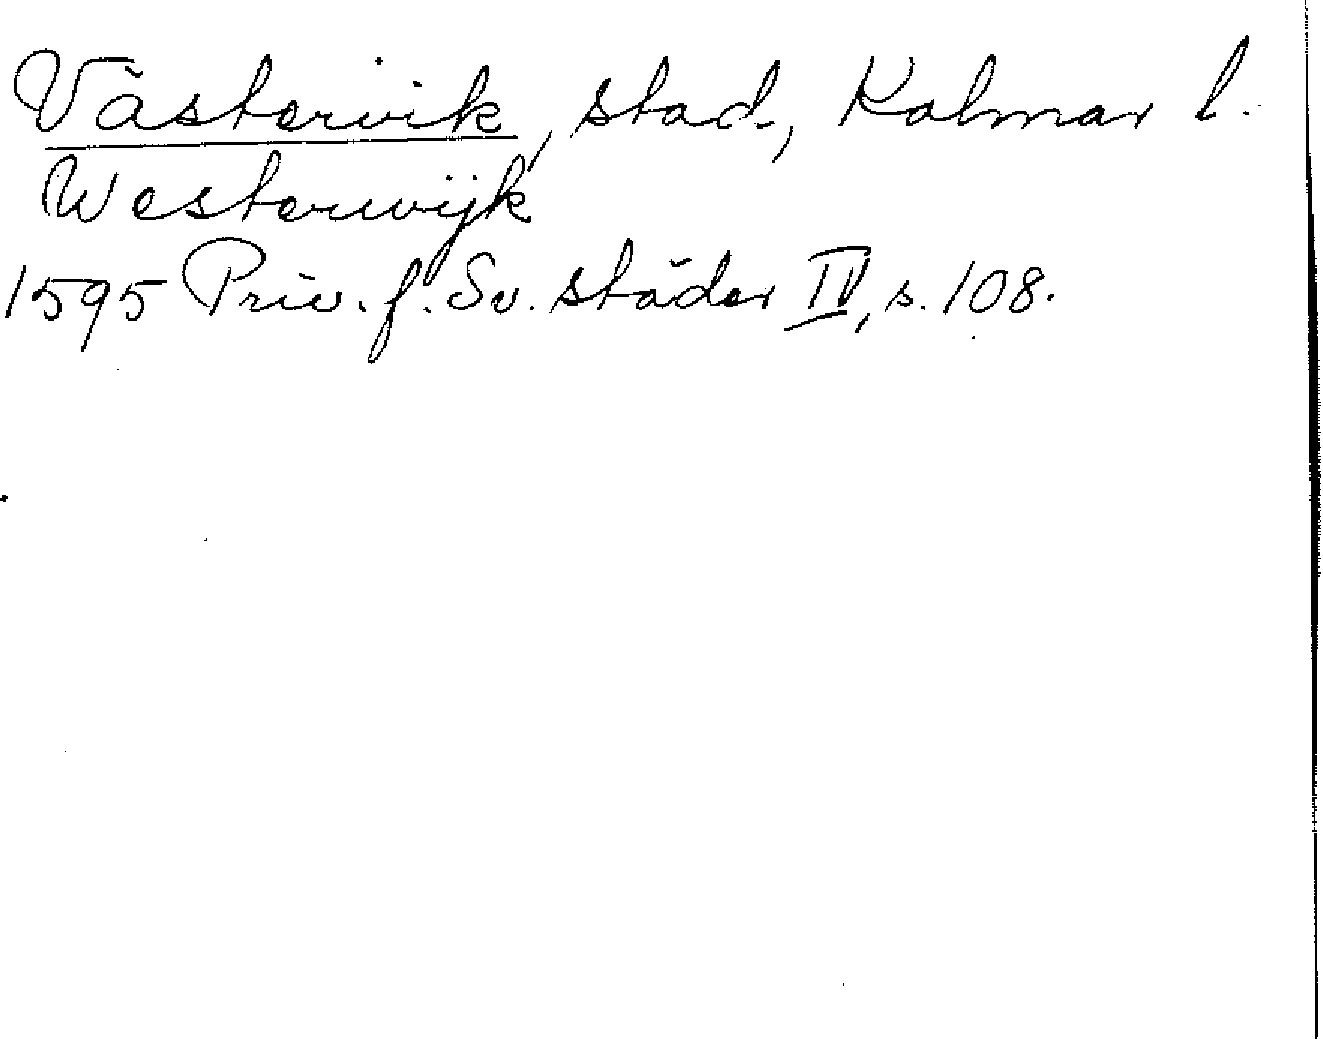 Västervik, stad, Kalmar l.
Westerwijk
1595 Priv. f. Sv. städer IV, s. 108.